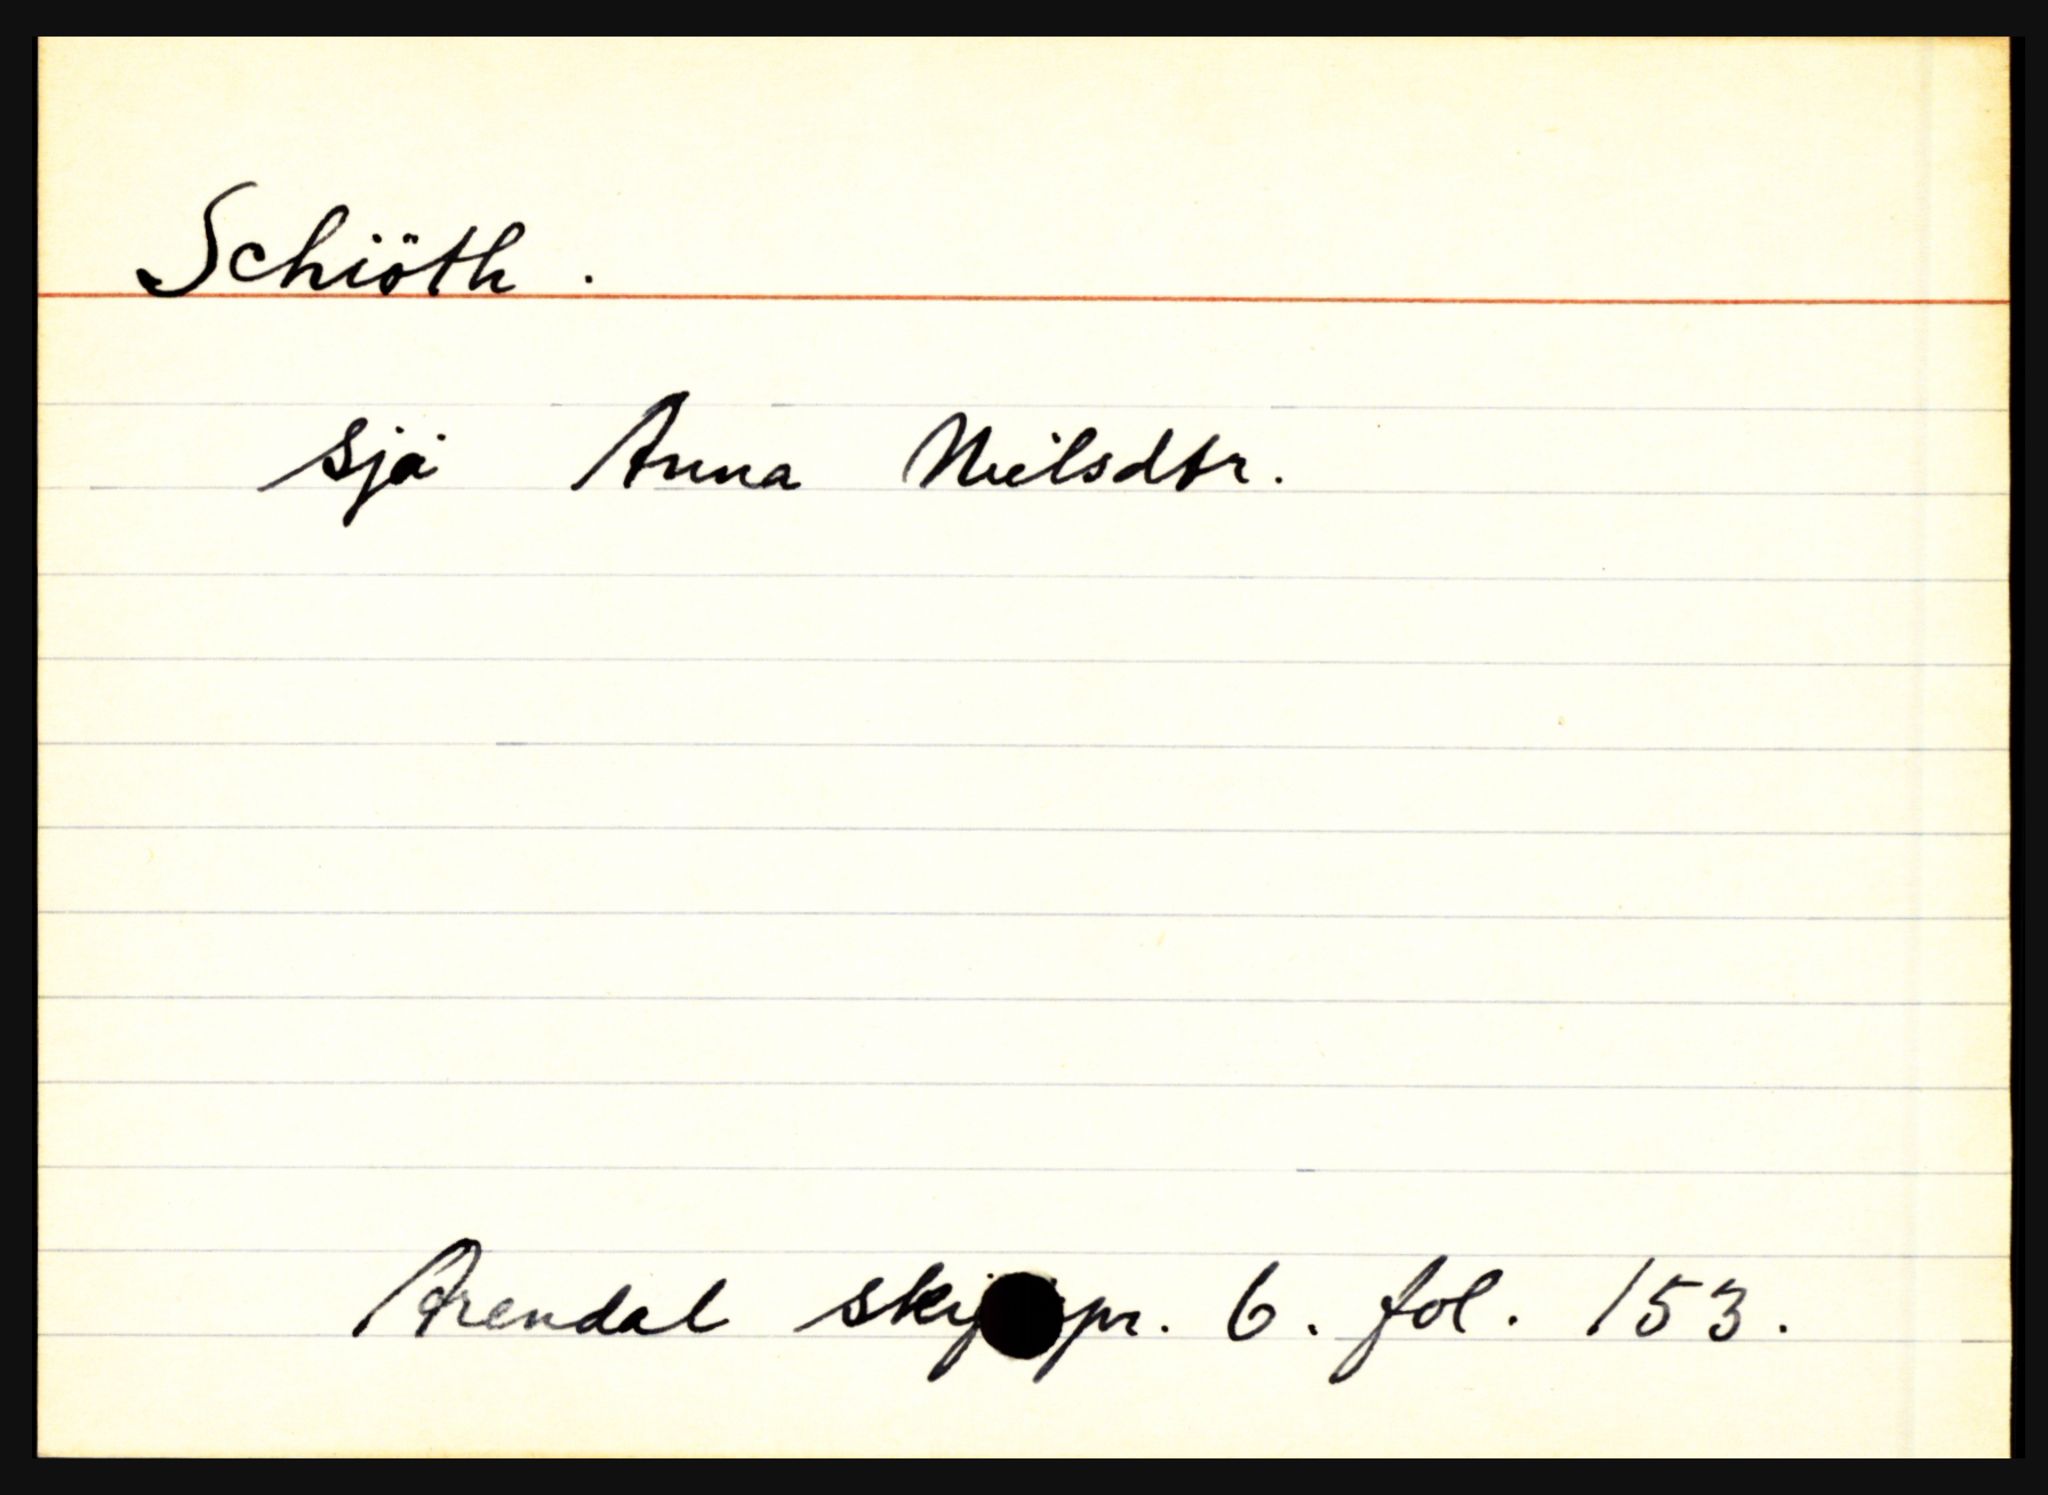 Schiöth.
sjå Anna Neilsdtr.
Arendal pr. 6. fol. 153.